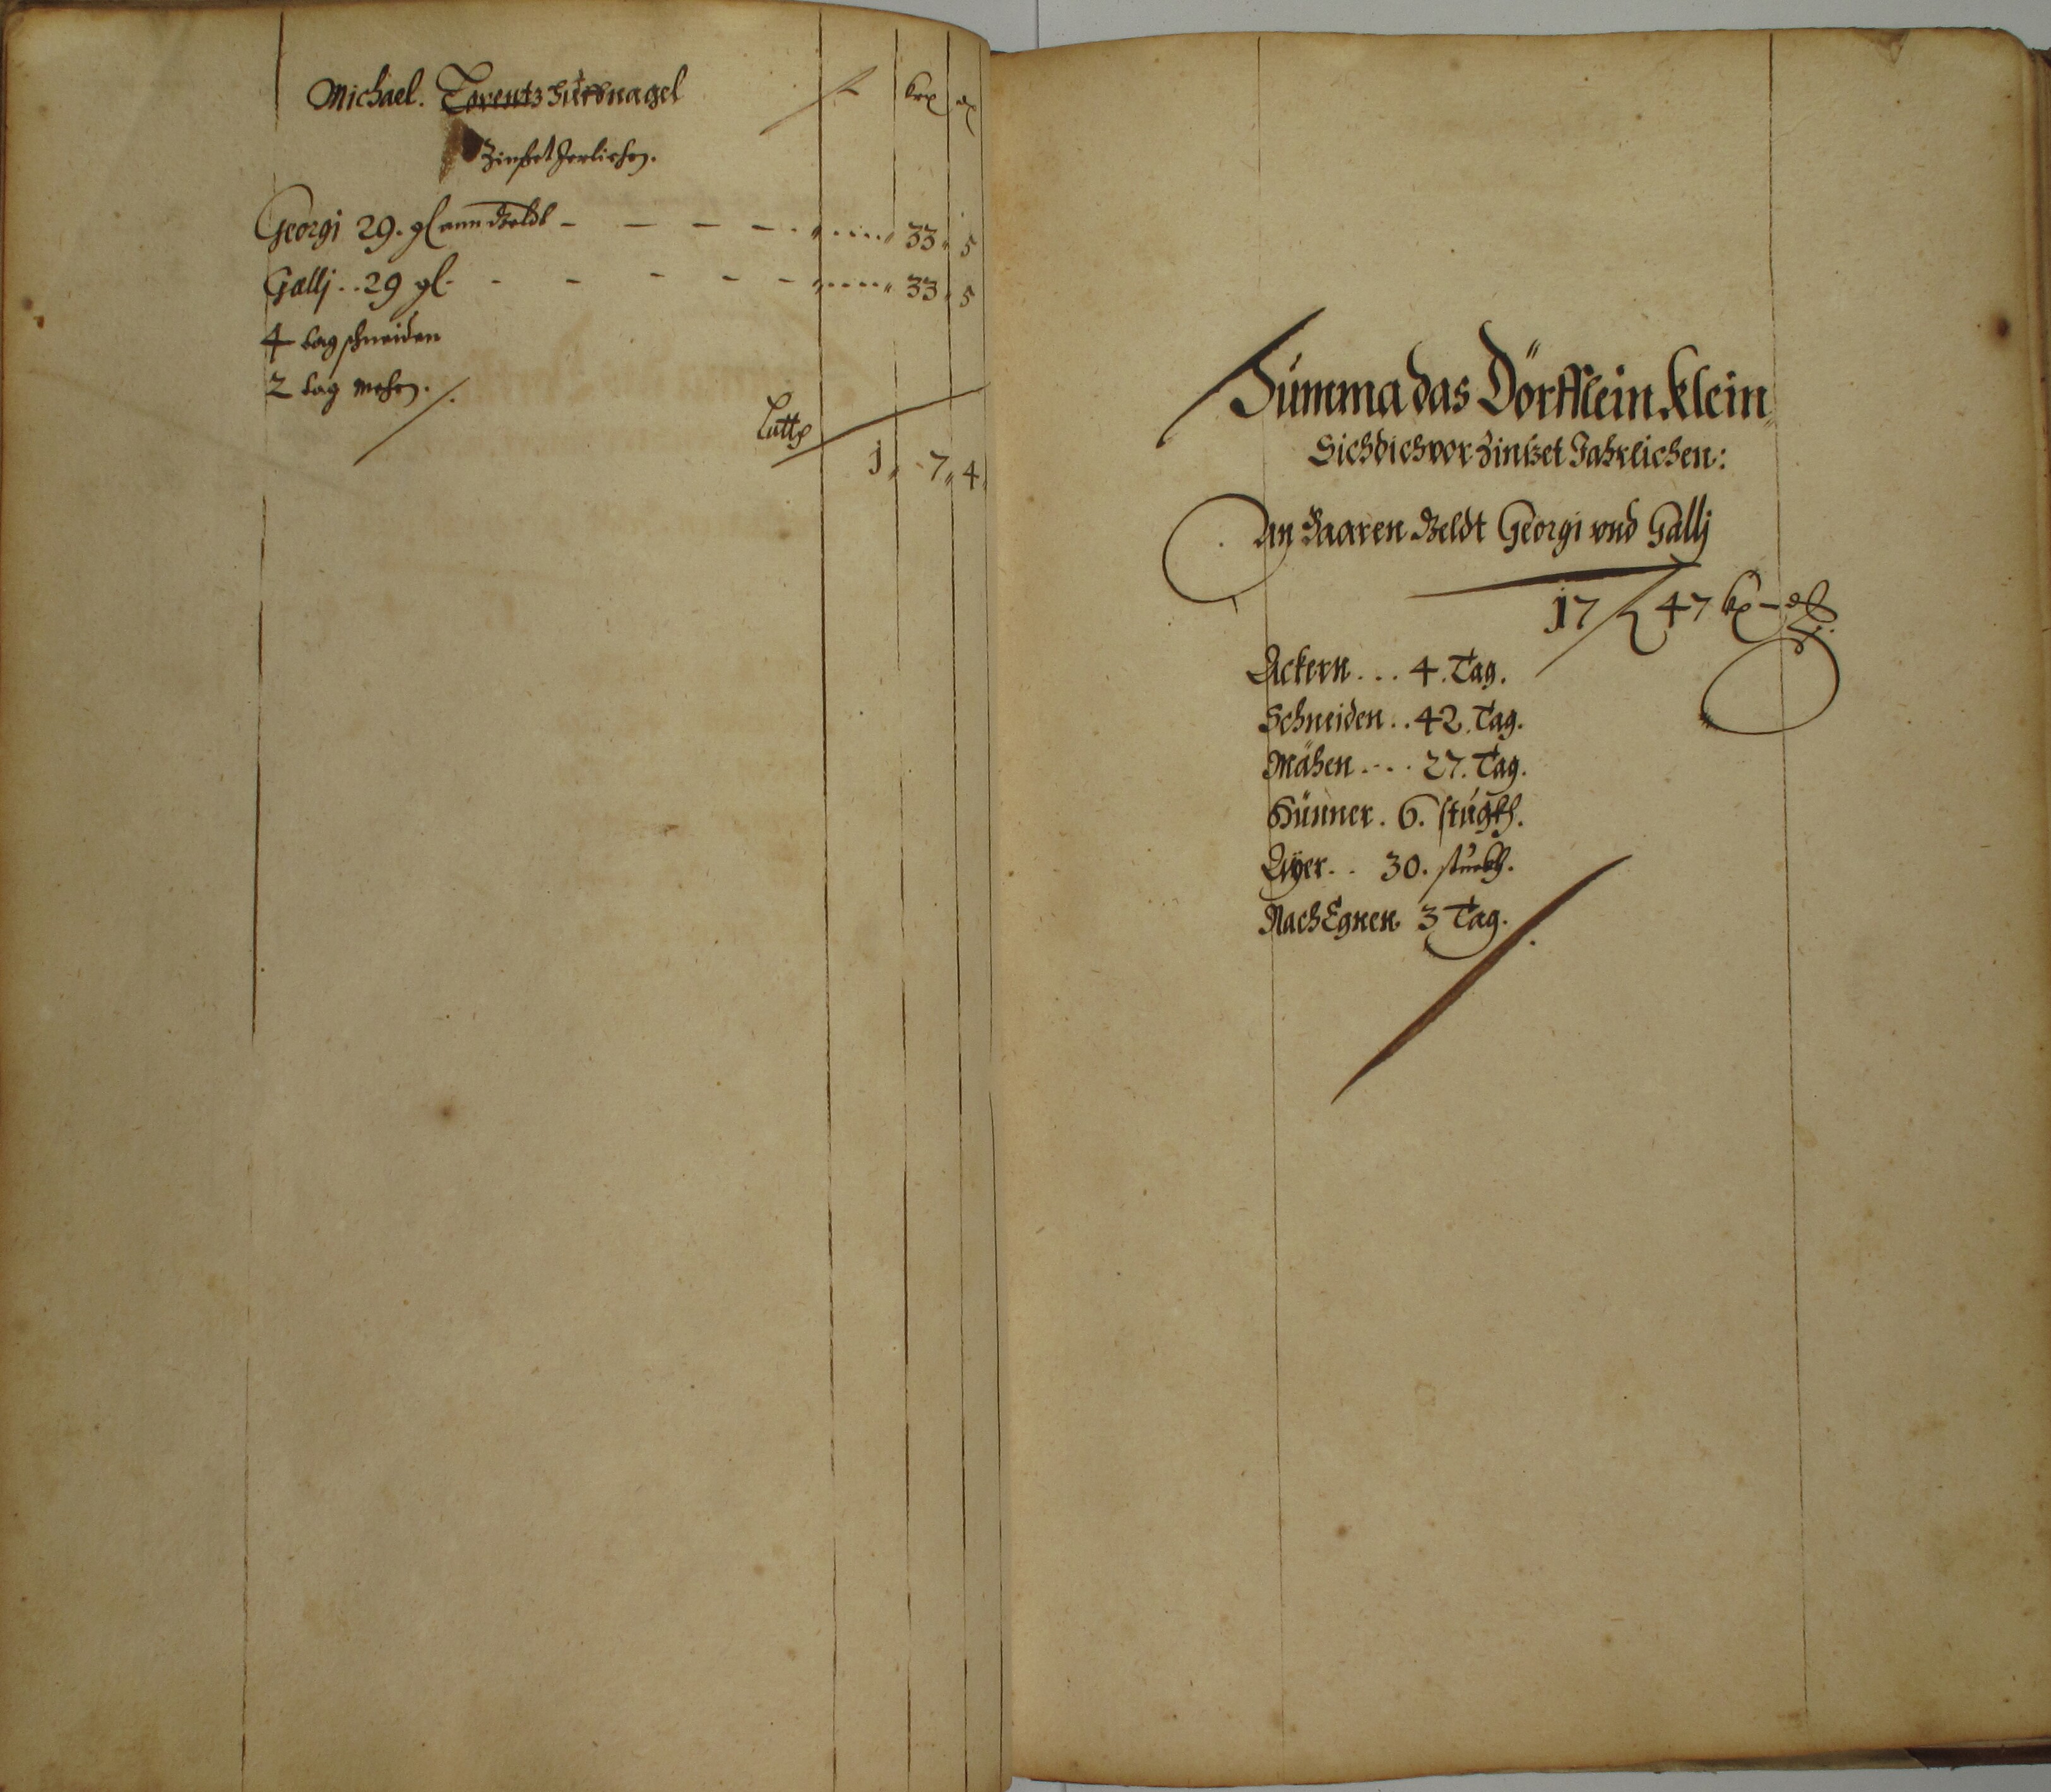 Michael. Lorentz Huefnagel f krx dx
Zinßet Jerlichen.
Georgi 29. gl ann Geldt - - - - 33 „ 5
Gallj .. 29 gl. - - - - - 33 „ 5
4 tag schneiden
2 tag mehen.
Lattx 1 „ 7 „ 4
Summa das Dörfflein Klein
Sichdichvor Zinßet Jahrlichen:
An Baaren Geldt Georgi vnd Gallj
17 f 47 kx - dl
Ackern ... 4. Tag.
Schneiden .. 42. Tag.
Mähen .... 27. Tag.
Hünner. 6. stuckh.
Ayer .. 30. stuckh.
NachEgnen 3 Tag.